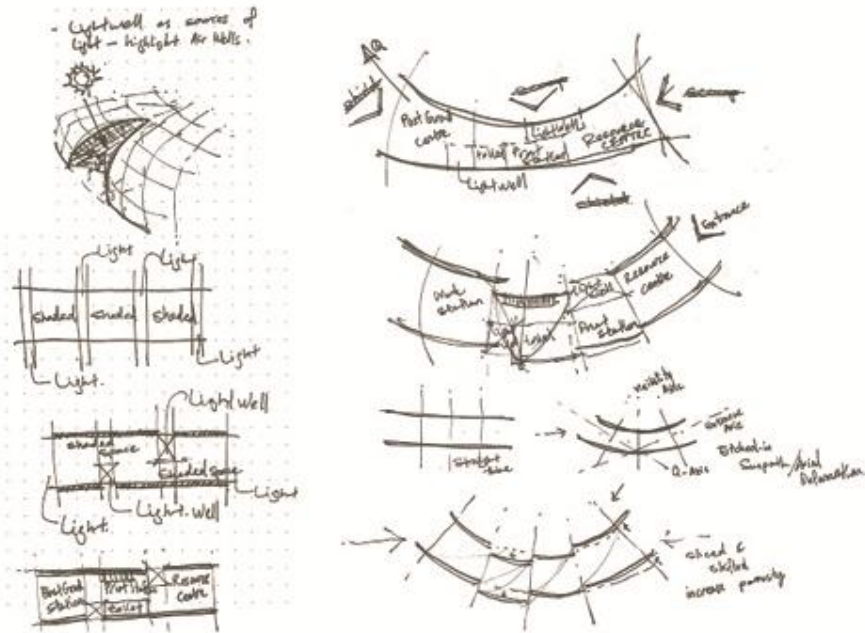 - Lightwell as sources of
light - highlight Air Wells.
Light
Light
Shaded
Shaded
Shaded
Light
Light.
Light Well
Shaded
Space
Shaded Space
Light
Light.
Light. Well
PostGrad
Station
Print
Resource
Centre
toilet
Q
PostGrad
Centre
toilet
Print
LightWell
RESOURCE
CENTRE
LightWell
Entrance
Work
Station
Light
Well
Resource
Centre
toilet
Print
Station
Straight
Line
Visibility
Axis
Entrance
Axis
Q-Axis
Etched-in
Sunpath/Axial
Deformation
Sliced &
Shifted
increase porosity